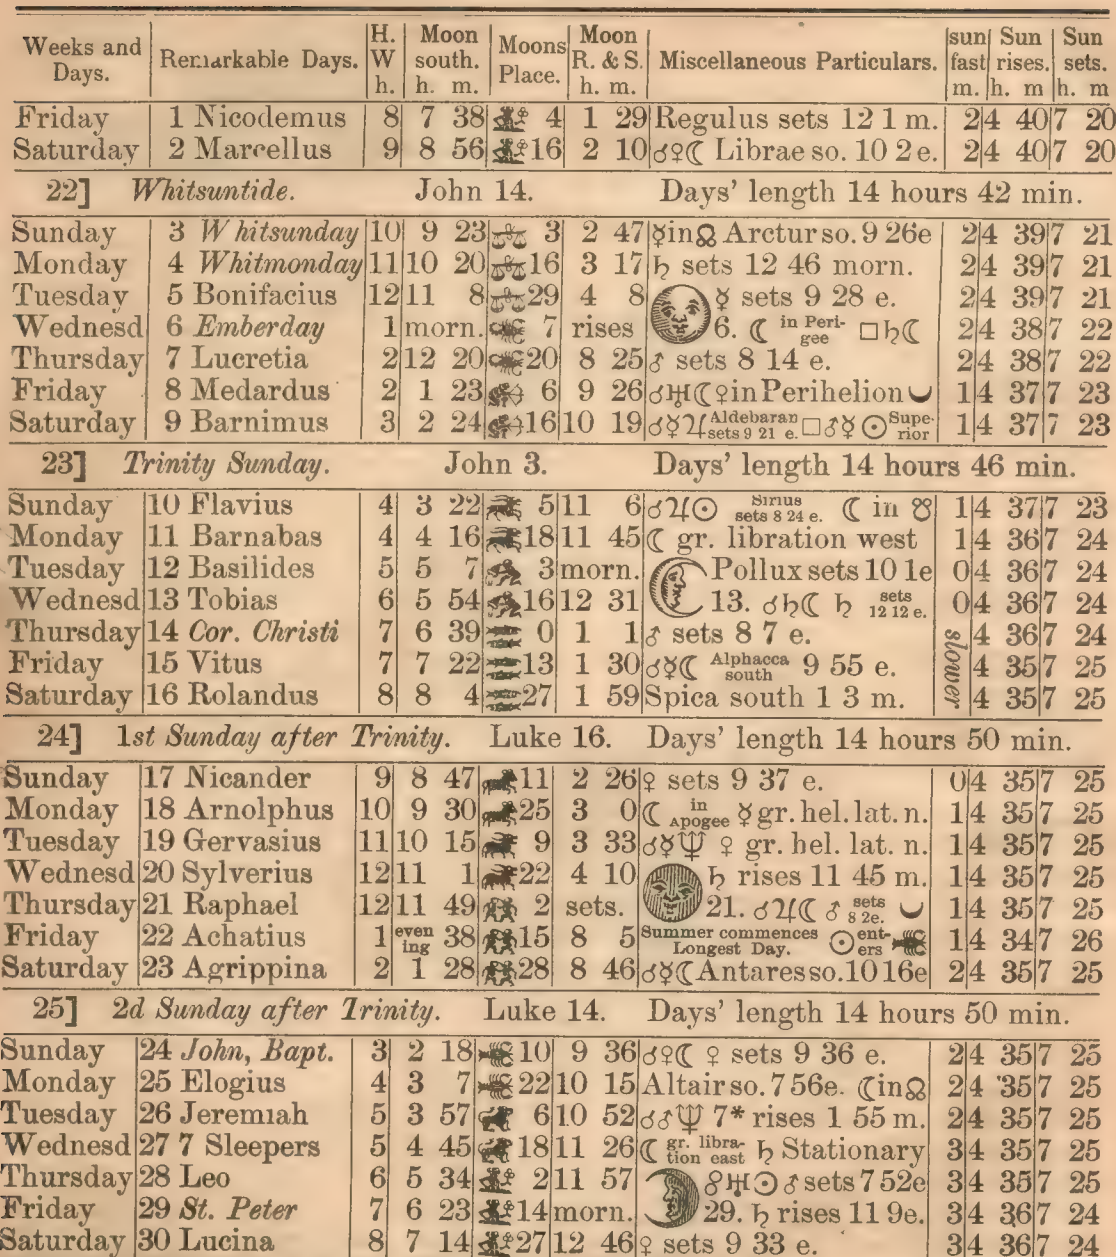 Weeks and Days. Remarkable Days. H. W h. Moon south. h. m. Moons Place. Moon R. & S. h. m. Miscellaneous Particulars. sun fast m. Sun rises. h. m Sun sets. h. m
Friday 1 Nicodemus 8 7 38 4 1 29 Regulus sets 12 1 m. 2 4 40 7 20
Saturday 2 Marcellus 9 8 56 16 2 10 ☌♀☾ Librae so. 10 2 e. 2 4 40 7 20
22] Whitsuntide. John 14. Days' length 14 hours 42 min.
Sunday 3 Whitsunday 10 9 23 3 2 47 ☿in☊ Arctur so. 9 26e 2 4 39 7 21
Monday 4 Whitmonday 11 10 20 16 3 17 ♄ sets 12 46 morn. 2 4 39 7 21
Tuesday 5 Bonifacius 12 11 8 29 4 8 ☿ sets 9 28 e. 2 4 39 7 21
Wednesd 6 Emberday 1 morn. 7 rises 6. ☾ in Perigee □♄☾ 2 4 38 7 22
Thursday 7 Lucretia 2 12 20 20 8 25 ♂ sets 8 14 e. 2 4 38 7 22
Friday 8 Medardus 2 1 23 6 9 26 ☌♅☾♀in Perihelion 1 4 37 7 23
Saturday 9 Barnimus 3 2 24 16 10 19 ☌☿♃ Aldebaran sets 9 21 e. □♂☿ ☉ Superior 1 4 37 7 23
23] Trinity Sunday. John 3. Days' length 14 hours 46 min.
Sunday 10 Flavius 4 3 22 5 11 6 ☌♃☉ Sirius sets 8 24 e. ☾ in ☋ 1 4 37 7 23
Monday 11 Barnabas 4 4 16 18 11 45 ☾ gr. libration west 1 4 36 7 24
Tuesday 12 Basilides 5 5 7 3 morn. Pollux sets 10 1e 0 4 36 7 24
Wednesd 13 Tobias 6 5 54 16 12 31 13. ☌♄☾ ♄ sets 12 12 e. 0 4 36 7 24
Thursday 14 Cor. Christi 7 6 39 0 1 1 ♂ sets 8 7 e. slower 4 36 7 24
Friday 15 Vitus 7 7 22 13 1 30 ☌☿☾ Alphacca south 9 55 e. 4 35 7 25
Saturday 16 Rolandus 8 8 4 27 1 59 Spica south 1 3 m. 4 35 7 25
24] 1st Sunday after Trinity. Luke 16. Days' length 14 hours 50 min.
Sunday 17 Nicander 9 8 47 11 2 26 ♀ sets 9 37 e. 0 4 35 7 25
Monday 18 Arnolphus 10 9 30 25 3 0 ☾ in Apogee ☿ gr. hel. lat. n. 1 4 35 7 25
Tuesday 19 Gervasius 11 10 15 9 3 33 ☌☿♆ ♀ gr. hel. lat. n. 1 4 35 7 25
Wednesd 20 Sylverius 12 11 1 22 4 10 ♄ rises 11 45 m. 1 4 35 7 25
Thursday 21 Raphael 12 11 49 2 sets. 21. ☌♃☾ ♂ sets 8 2e. 1 4 35 7 25
Friday 22 Achatius 1 evening 38 15 8 5 Summer commences Longest Day. ☉ enters 1 4 34 7 26
Saturday 23 Agrippina 2 1 28 28 8 46 ☌☿☾ Antares so. 10 16e 2 4 35 7 25
25] 2d Sunday after Trinity. Luke 14. Days' length 14 hours 50 min.
Sunday 24 John, Bapt. 3 2 18 10 9 36 ☌♀☾ ♀ sets 9 36 e. 2 4 35 7 25
Monday 25 Elogius 4 3 7 22 10 15 Altair so. 7 56e. ☾in☊ 2 4 35 7 25
Tuesday 26 Jeremiah 5 3 57 6 10 52 ☌♂♆ 7* rises 1 55 m. 2 4 35 7 25
Wednesd 27 7 Sleepers 5 4 45 18 11 26 ☾ gr. libration east ♄ Stationary 3 4 35 7 25
Thursday 28 Leo 6 5 34 2 11 57 ☍♅☉ ♂ sets 7 52e 3 4 35 7 25
Friday 29 St. Peter 7 6 23 14 morn. 29. ♄ rises 11 9e. 3 4 36 7 24
Saturday 30 Lucina 8 7 14 27 12 46 ♀ sets 9 33 e. 3 4 36 7 24